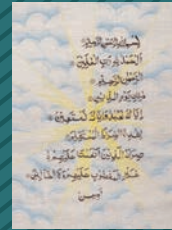 بسم الله الرحمن الرحيم
الحمد لله رب العلمين
الرحمن الرحيم
ملك يوم الدين
اياك نعبد واياك نستعين
اهدنا الصراط المستقيم
صراط الذين انعمت عليهم
غير المغضوب عليهم ولا الضالين
امين